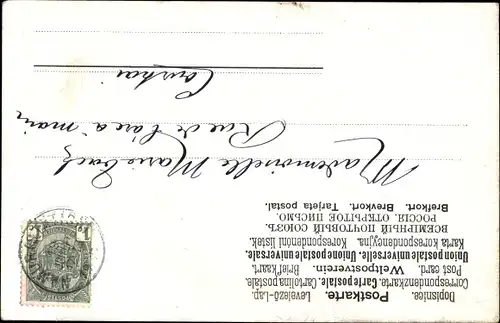 Dopisnice. Postkarte. Levelező-Lap.
Correspondenzkarte. Carte postale. Cartolina postale.
Post card. Weltpostverein. Brefkaart.
Union postale universelle. Unione postale universale.
Karta korespondencyjna. Korespondenční lístek.
ВСЕМІРНЫЙ ПОЧТОВЫЙ СОЮЗЪ.
РОСCІЯ. ОТКРЫТОЕ ПИСЬМО.
Brefkort. Brevkort. Tarjeta postal.
Mademoiselle Marie
Rue de
Courtrai
1 1